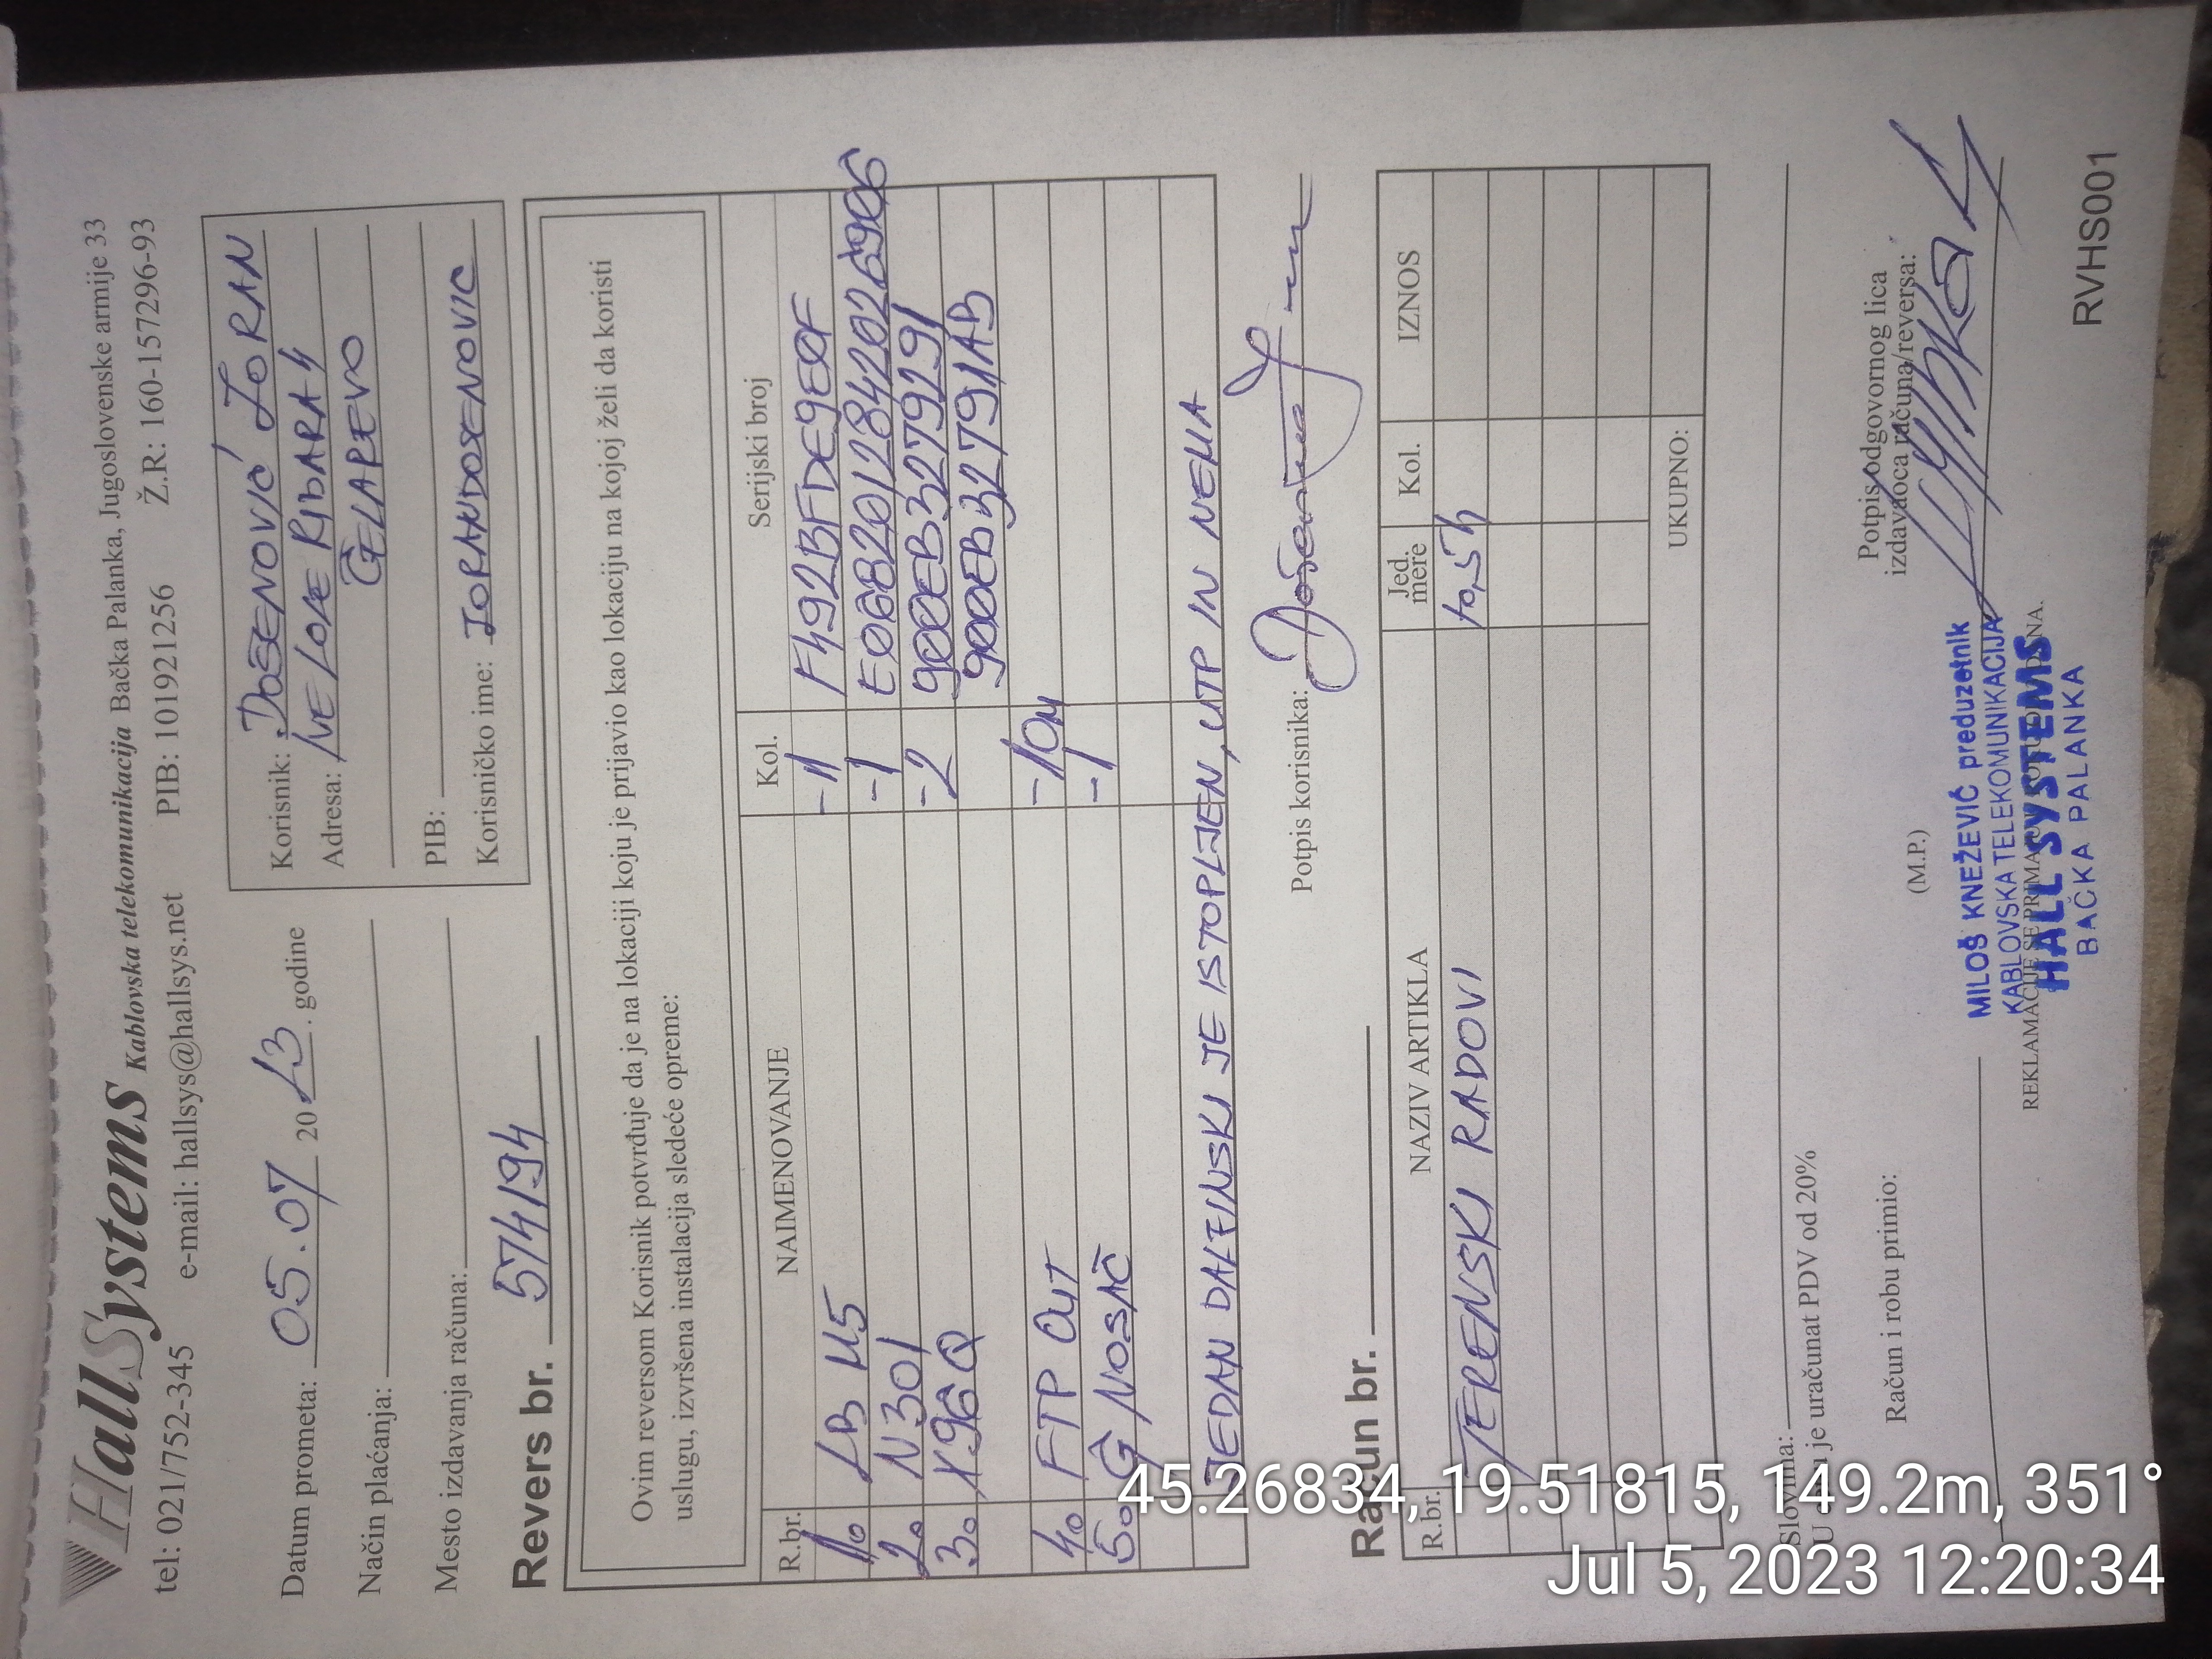 HallSystems Kablovska telekomunikacija Bačka Palanka, Jugoslovenske armije 33
tel: 021/752-345 e-mail: hallsys@hallsys.net PIB: 101921256 Ž.R: 160-157296-93
Datum prometa: 05.07 2023. godine
Način plaćanja:
Mesto izdavanja računa:
Korisnik: DOŠENOVIĆ ZORAN
Adresa: IVE LOLE RIBARA 4
ČELAREVO
PIB:
Korisničko ime: ZORANDOSENOVIC
Revers br. 574194
Ovim reversom Korisnik potvrđuje da je na lokaciji koju je prijavio kao lokaciju na kojoj želi da koristi
uslugu, izvršena instalacija sledeće opreme:
R.br. NAIMENOVANJE Kol. Serijski broj
1. LB M5 -1 F492BFDE9E0F
2. N301 -1 E0682012842026906
3. X96Q -2 900EB3279291
900EB32791AB
4. FTP OUT -10M
5. G NOSAČ -1
JEDAN DALJINSKI JE ISTOPLJEN, UTP IN NEMA
Potpis korisnika:
Račun br.
R.br. NAZIV ARTIKLA Jed. mere Kol. IZNOS
TERENSKI RADOVI
UKUPNO:
Slovima:
U cenu je uračunat PDV od 20%
Račun i robu primio:
(M.P.)
Potpis odgovornog lica
izdavaoca računa/reversa:
MILOŠ KNEŽEVIĆ preduzetnik
KABLOVSKA TELEKOMUNIKACIJA
REKLAMACIJE SE PRIMAJU
HALL SYSTEMS
BAČKA PALANKA
RVHS001
45.26834, 19.51815, 149.2m, 351°
Jul 5, 2023 12:20:34